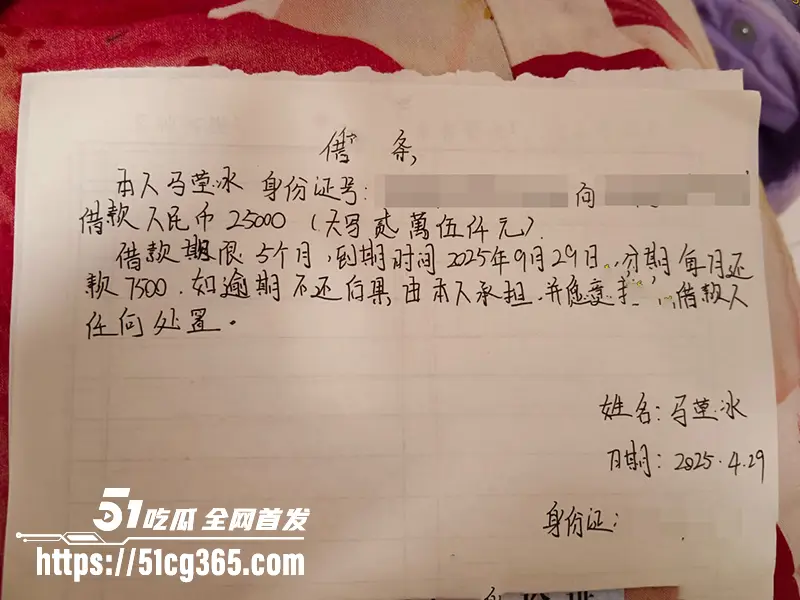 借条
本人马莹冰 身份证号: 向
借款人民币 25000 (大写 贰萬伍仟元)
借款期限 5个月, 到期时间 2025年9月29日, 分期每月还
款7500. 如逾期不还后果由本人承担, 并愿 借款人
任何处置。
姓名: 马莹冰
日期: 2025.4.29
身份证:
51吃瓜 全网首发
https://51cg365.com